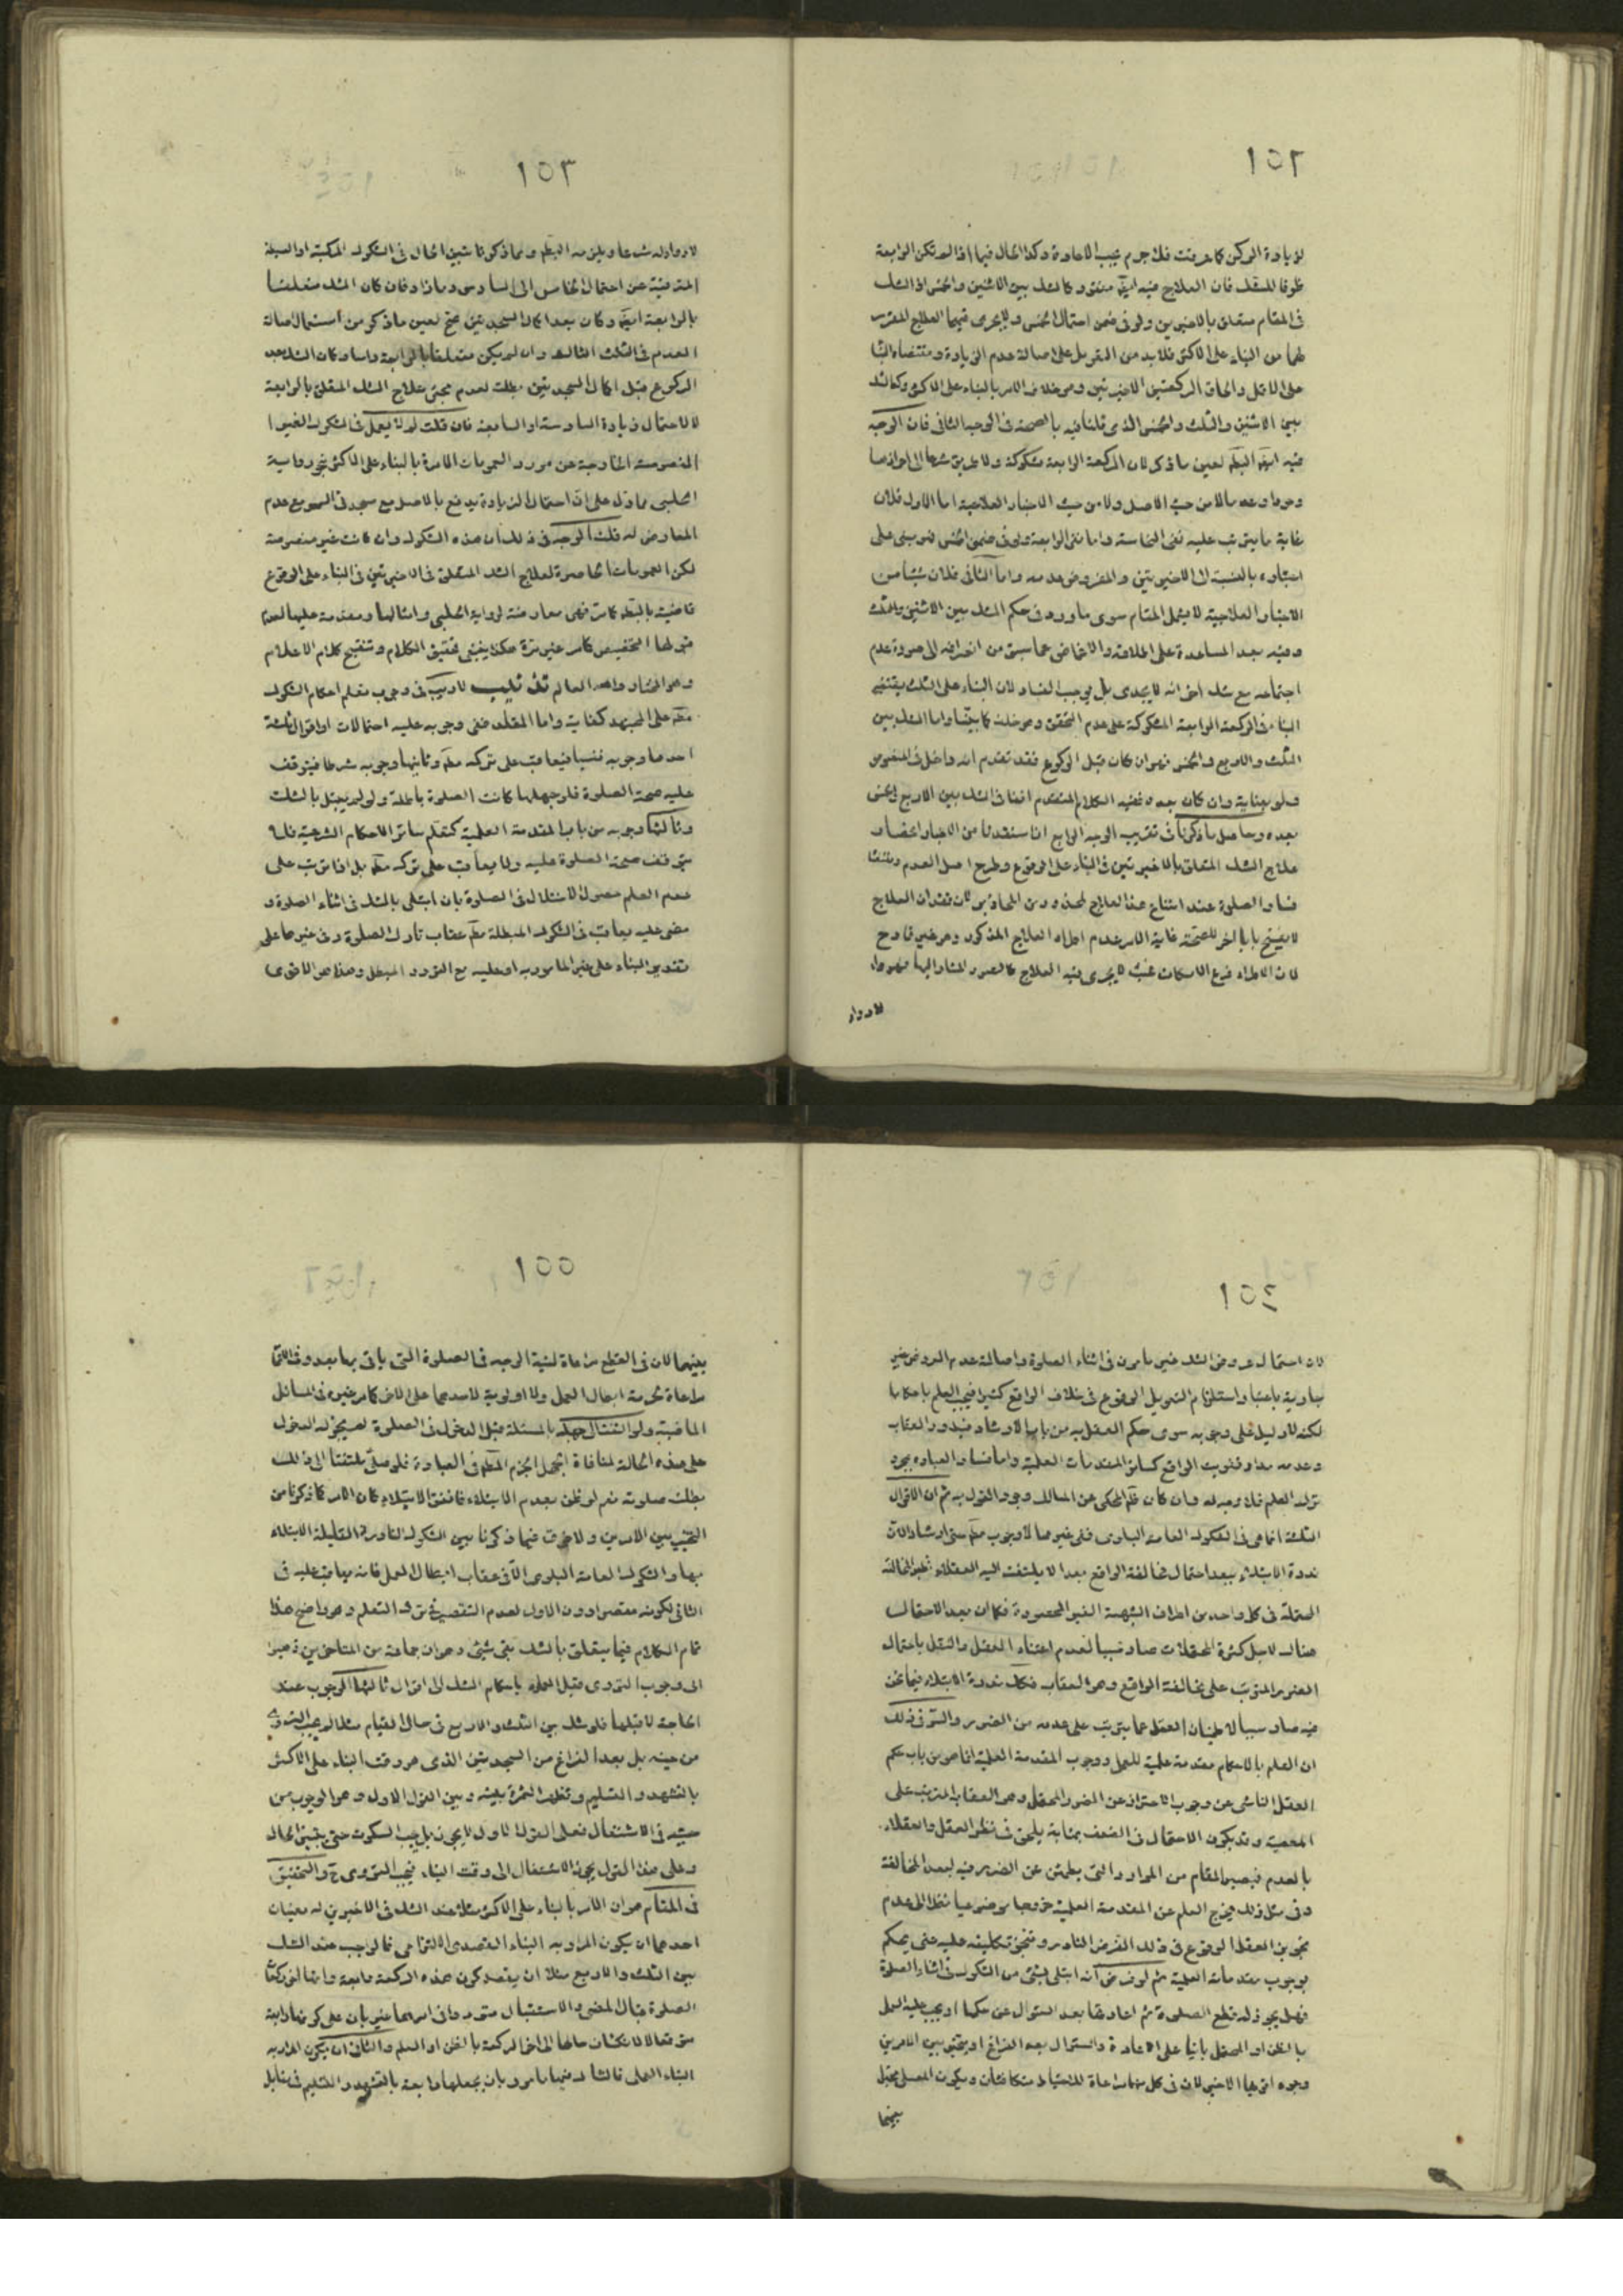 ١٥٢
لزيادة الركن كما عرفت فلا جرم يجب الاعادة وكذا الحال فيما اذا لم تكن الرابعة
طرفا للشك فان العلاج فيه ايضا منتف وكالشك بين الاثنين والخمس اذ الشك
في المقام متعلق بالاخيرتين ولو في ضمن احتمال الخمس ولا يجرى فيهما العلاج المقرر
لهما من البناء على الاكثر فلا بد من التعويل على اصالة عدم الزيادة ومقتضاه البناء
على الاقل والحاق الركعتين الاخيرتين وهو خلاف الامر بالبناء على الاكثر وكالشك
بين الاثنين والثلث والخمس الذى قلنا فيه بالصحة في الوجه الثاني فان الوجه
فيه ايضا البطلان لعين ما ذكر لان الركعة الرابعة مشكوكة ولا طريق شرعا الى احراز
وجودها وعدمها لا من حيث الاصل ولا من حيث الاخبار العلاجية اما الاول فلان
غاية ما يترتب عليه نفى الخامسة واما نفى الرابعة ولو في ضمن الخمس فهو مبنى على
اعتباره بالنسبة الى الاخيرتين والمفروض عدمه واما الثاني فلان شيئا من
الاخبار العلاجية لا يشمل المقام سوى ما ورد في حكم الشك بين الاثنين والثلث
وفيه بعد المساعدة على اطلاقه والاغماض عما سبق من انصرافه الى صورة عدم
اجتماعه مع شك اخر انه لا يجدى بل يوجب الفساد لان البناء على الثلث يقتضى
البناء في الركعة الرابعة المشكوكة على عدم التحقق وهو خلف كما بيناه واما الشك بين
الثلث والاربع والخمس فهو ان كان قبل الركوع فقد تقدم انه داخل في المنصوص
وان كان بعده ففيه الكلام المتقدم انفا في الشك بين الاربع والخمس
بعده وحاصل ما ذكرنا في تقريب الوجه الرابع انا استفدنا من الاخبار
علاج الشك المتعلق بالاخيرتين في البناء على الوقوع وطرح اصل العدم
فساد الصلوة عند امتناع هذا العلاج لان فقدان العلاج
لا يفتح بابا اخر للصحة غاية الامر عدم اطراد العلاج المذكور وهو غير قادح
لان الاطراد فرع الامكان فحيث لا يجرى فيه العلاج كالصور المشار اليها فهو
لا دواء
١٥٣
لا دواء له شرعا ويلزمه البطلان ومما ذكرنا تبين الحال في الشكوك المركبة او البسيطة
المترقية عن احتمال الخامس الى السادس وما زاد فان كان الشك متعلقا
بالرابعة ايضا وكان بعد اكمال السجدتين صح لعين ما ذكر من استعمال اصالة
العدم في الشك الثالث وان لم يكن متعلقا بالرابعة راسا وكان الشك بعد
الركوع قبل اكمال السجدتين بطلت لعدم مجئ علاج الشك المتعلق بالرابعة
لا لاحتمال زيادة السادسة او السابعة فان قلت لم لا يعمل في الشكوك الغير
المنصوصة الخارجة عن مورد العمومات الامرة بالبناء على الاكثر بنحو رواية
الحلبى مما دل على ان احتمال الزيادة يدفع بالاصل مع سجدتى السهو مع عدم
المعارض له قلت الوجه في ذلك ان هذه الشكوك وان كانت غير منصوصة
لكن العمومات الحاصرة لعلاج الشك المتعلق في الاخيرتين في البناء على الوقوع
قاضية بالبطلان كما مر فهى معارضة لرواية الحلبى وامثالها ومقدمة عليها لعدم
قبولها التخصيص كما مر غير مرة هكذا ينبغى تحقيق الكلام وتنقيح كلام الاعلام
وهو المختار والله العالم تذنيب لا ريب في وجوب تعلم احكام الشكوك
على المجتهد كفاية واما المقلد ففى وجوبه عليه احتمالات او اقوال ثلثة
احدها وجوبه نفسيا فيعاقب على تركه مطلقا وثانيها وجوبه شرطا فيتوقف
عليه صحة الصلوة فلو جهلها كانت الصلوة باطلة ولو لم يبتل بالشك
وثالثها وجوبه من باب المقدمة العلمية كتعلم سائر الاحكام الشرعية فلا
يتوقف صحة الصلوة عليه ولا يعاقب على تركه مطلقا بل اذا ترتب على
عدم العلم حصول الاختلال في الصلوة بان ابتلى بالشك في اثناء الصلوة و
مضى عليه يعاقب في الشكوك المبطلة عقاب تارك الصلوة وفي غيرها على
تقدير البناء على غير المامور به او عليه مع التردد المبطل وهذا هو الاقوى
١٥٤
لان احتمال عروض الشك غير مامون في اثناء الصلوة واصالة عدم العروض غير
جارية باعتبار استلزام التعويل الوقوع في خلاف الواقع كثيرا فيجب العلم باحكامها
لكنه لا دليل على وجوبه سوى حكم العقل به من باب الارشاد فيدور العقاب
وعدمه مدار تفويت الواقع كسائر المقدمات العلمية واما فساد العبادة بمجرد
ترك العلم فلا وجه له وان كان ظاهر المحكى عن المسالك وجود القول به ثم ان الاقوال
الثلثة انما هى في الشكوك العامة البلوى ففى غيرها لا وجوب حتى ارشادا لان
ندرة الابتلاء يبعد احتمال مخالفة الواقع بعدا لا يلتفت اليه العقلاء نظير المخالفة
المحتملة في كل واحد من اطراف الشبهة الغير المحصورة فكما ان بعد الاحتمال
هناك لاجل كثرة المحتملات صار سببا لعدم اعتناء العقل والنقل باحتمال
الضرر المترتب على مخالفة الواقع وهو العقاب فكذلك ندرة الابتلاء فيما نحن
فيه صار سببا لاطمينان العقل عما يترتب على عدمه من الضرر والسر في ذلك
ان العلم بالاحكام مقدمة علمية للعمل ووجوب المقدمة العلمية انما هو من باب حكم
العقل الناشى عن وجوب الاحتراز عن الضرر المحتمل وهو العقاب المترتب على
المعصية وقد يكون الاحتمال في الضعف بمثابة يلحق في نظر العقل والعقلاء
بالعدم فيصير المقام من الموارد التى يطمئن عن الضرر فيه لبعد المخالفة
وفي مثل ذلك يخرج العلم عن المقدمة العلمية خروجا موضوعيا نظرا الى عدم
تجويز العقل الوقوع في ذلك الفرض النادر وتنجز تكليفه عليه حتى يحكم
بوجوب مقدماته العلمية ثم لو فرض انه ابتلى بشئ من الشكوك في اثناء الصلوة
فهل يجوز له قطع الصلوة ثم اعادتها بعد السؤال عن حكمها او يجب عليه العمل
بالظن او المحتمل بانيا على الاعادة والسؤال بعد الفراغ او يتخير بين الامرين
وجوه اقربها الاخير لان في كل منهما مراعاة للاحتياط متكافئان ويكون المصلى مخيرا
بينهما
١٥٥
بينهما لان في القطع مراعاة لنية الوجه في الصلوة التى ياتى بها بعد وفي الاتمام
مراعاة لحرمة ابطال العمل ولا اولوية لاحدهما على الاخر كما مر غيره في المسائل
الماضية ولو التفت الى جهله بالمسئلة قبل الدخول في الصلوة لم يجز له الدخول
على هذه الحالة لمنافاة الجهل الجزم المعتبر في العبادة فلو صلى ملتفتا الى ذلك
بطلت صلوته نعم لو ظن بعدم الابتلاء فاتفق الابتلاء كان الامر كما ذكرنا من
التخيير بين الامرين ولا فرق فيما ذكرنا بين الشكوك النادرة القليلة الابتلاء
بها والشكوك العامة البلوى الا في عقاب ابطال العمل فانه يعاقب عليه في
الثانى لكونه مقصرا دون الاول لعدم التقصير في ترك التعلم وهو واضح هذا
تمام الكلام فيما يتعلق بالشك بقى شئ وهو ان جماعة من المتاخرين ذهبوا
الى وجوب التروى قبل العمل باحكام الشك الى اقوال ثالثها الوجوب عند
الحاجة لا قبلها فلو شك بين الثلث والاربع في حال القيام مثلا لم يجب التروى
من حينه بل بعد الفراغ من السجدتين الذى هو وقت البناء على الاكثر
بالتشهد والتسليم وتظهر الثمرة بينه وبين القول الاول وهو الوجوب من
حينه في الاشتغال فعلى القول الاول لا يجوز بل يجب السكوت حتى يتبين الحال
وعلى هذا القول يجوز الاشتغال الى وقت البناء فيجب التروى ح والتحقيق
في المقام هو ان الامر بالبناء على الاكثر مثلا عند الشك في الاخيرتين له معنيان
احدهما ان يكون المراد به البناء القصدى الالتزامى فالواجب عند الشك
بين الثلث والاربع مثلا ان يقصد كون هذه الركعة رابعة
الصلوة فحال المضى والاستقبال
حتى
البناء العملى فالشاك فيها مامور بان يجعلها رابعة بالتشهد والتسليم في مقابل